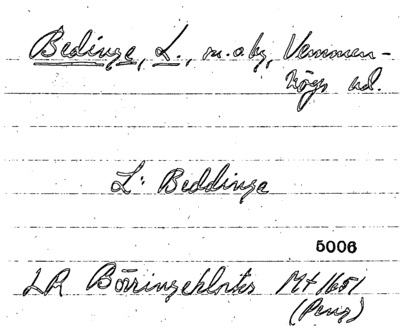 Bedinge, L., m. obg, Vemmen-
högs hd.
L: Beddinge
5006
LR Börringekloster Mt 1651
(Peng)